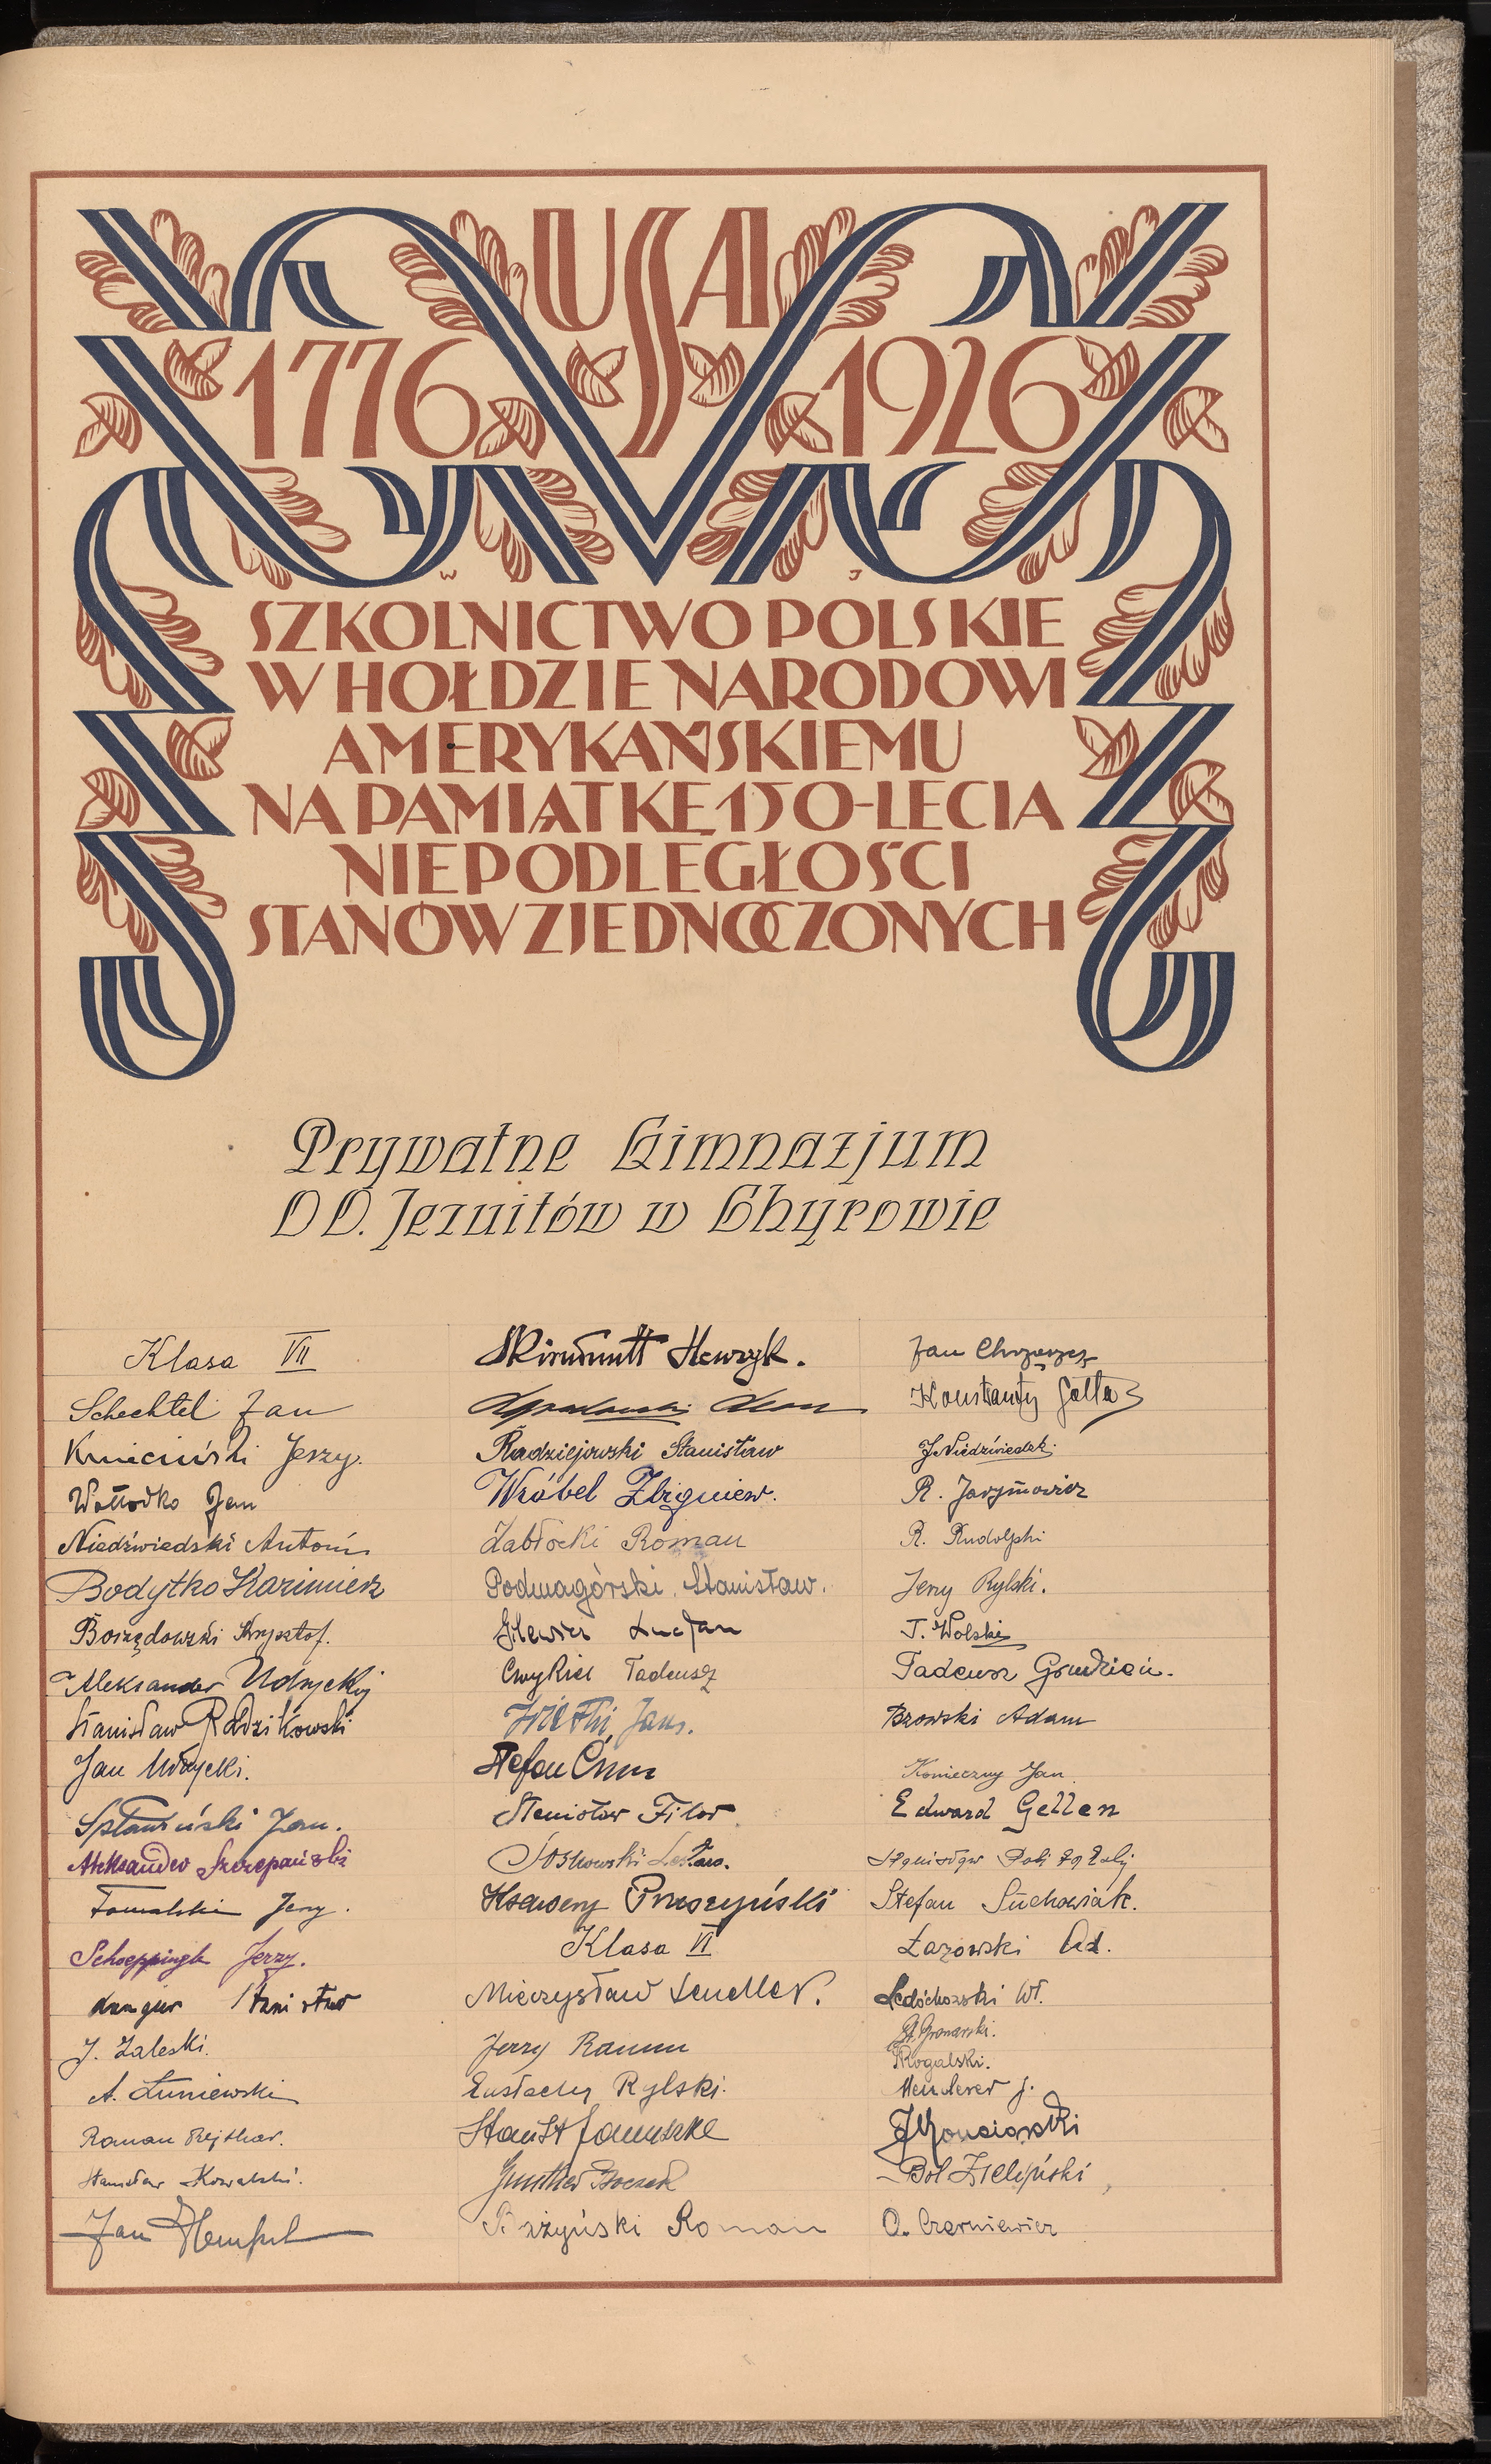 USA
1776 1926
W J
SZKOLNICTWO POLSKIE
W HOŁDZIE NARODOWI
AMERYKAŃSKIEMU
NA PAMIĄTKĘ 150-LECIA
NIEPODLEGŁOŚCI
STANÓW ZJEDNOCZONYCH
Prywatne Gimnazjum
OO. Jezuitów w Chyrowie
Klasa VII
Schechtel Jan
Kmieciński Jerzy.
Wołłodko Jan
Niedźwiedski Antoni
Bodytko Kazimierz
Borzędowski Krzysztof.
Aleksander Udrycki
Stanisław Radzikowski
Jan Udrycki.
Spławiński Jan.
Aleksander Szczepański
Tomalski Jerzy.
Schoeppingk Jerzy.
Stanisław
J. Zaleski.
A. Łuniewski
Roman Rejthar.
Stanisław Kowalski.
Jan Hempel
Skirmuntt Henryk.
Radziejowski Stanisław
Wróbel Zbigniew.
Zabłocki Roman
Podmagórski Stanisław.
Ilewicz Lucjan
Ćwykiel Tadeusz
Jan.
Stefan
Stanisław Filar
Ksawery Pruszyński
Klasa VI
Mieczysław Lendler.
Jerzy Ramm
Eustachy Rylski.
Gunther
Bażyński Roman
Jan Chrząszcz
Konstanty
J. Niedźwiedzki
R. Jarymowicz
R. Rudolphi
Jerzy Rylski.
T. Wolski
Tadeusz Grudzień.
Bzowski Adam
Konieczny Jan
Edward Gellen
Stanisław
Stefan Suchowiak.
Łazowski Ad.
Ledóchowski Wł.
St. Gronarski.
Rogalski.
J.
Bol. Zieliński
O. Czerniewicz